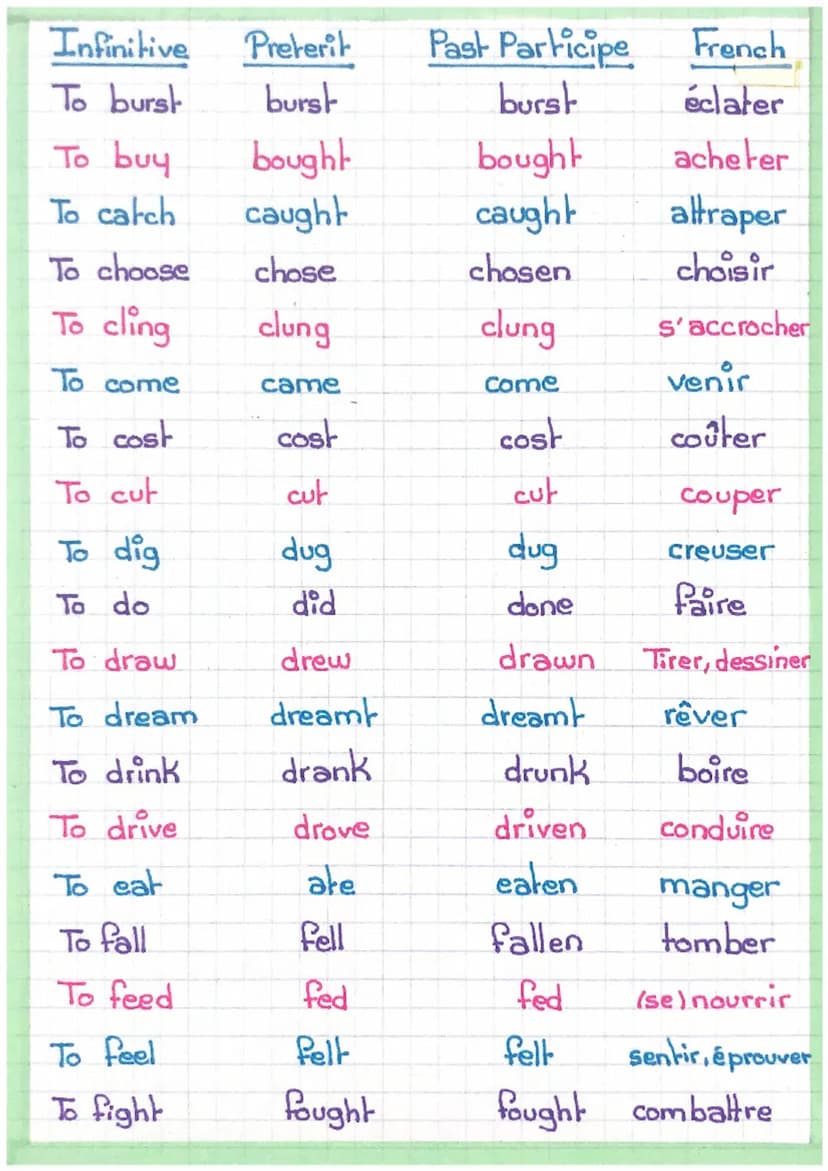 Infinitive Preterit Past Participe French
To burst burst burst éclater
To buy bought bought acheter
To catch caught caught attraper
To choose chose chosen choisir
To cling clung clung s'accrocher
To come came come venir
To cost cost cost coûter
To cut cut cut couper
To dig dug dug creuser
To do did done faire
To draw drew drawn Tirer, dessiner
To dream dreamt dreamt rêver
To drink drank drunk boire
To drive drove driven conduire
To eat ate eaten manger
To fall fell fallen tomber
To feed fed fed (se) nourrir
To feel felt felt sentir, éprouver
To fight fought fought combattre